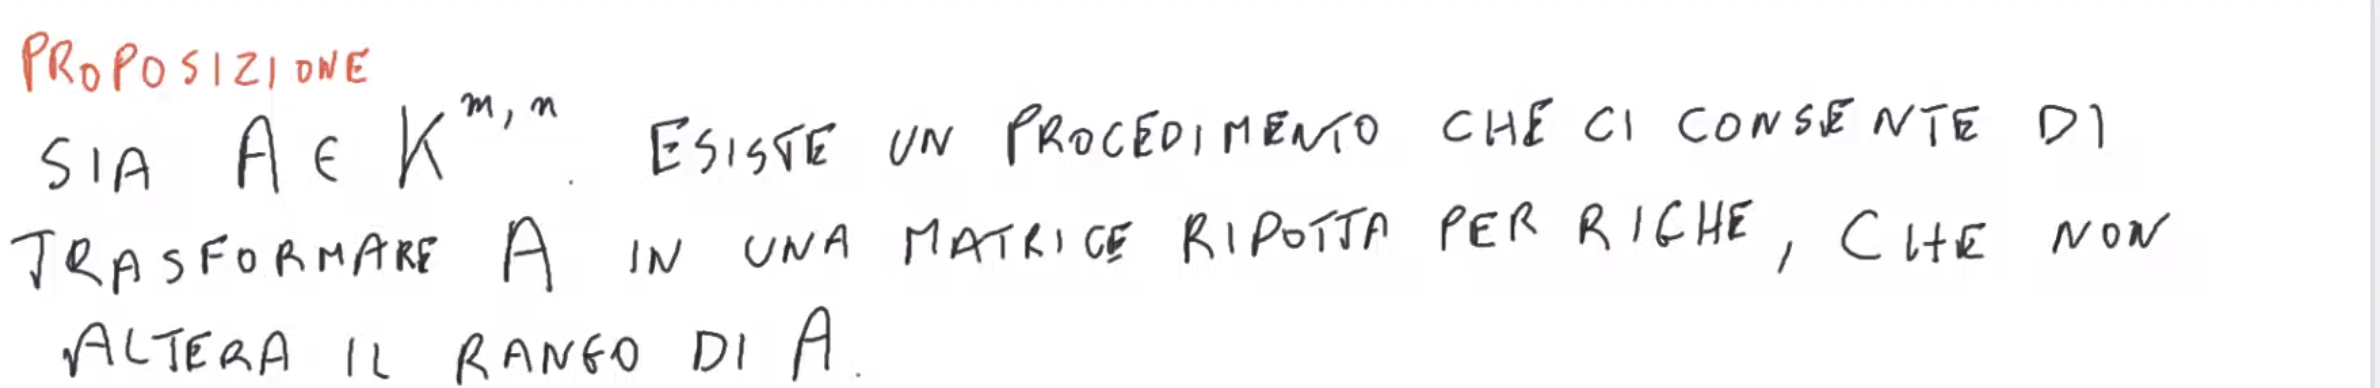 PROPOSIZIONE
SIA A ∈ K^{m,n}. ESISTE UN PROCEDIMENTO CHE CI CONSENTE DI
TRASFORMARE A IN UNA MATRICE RIDOTTA PER RIGHE, CHE NON
ALTERA IL RANGO DI A.